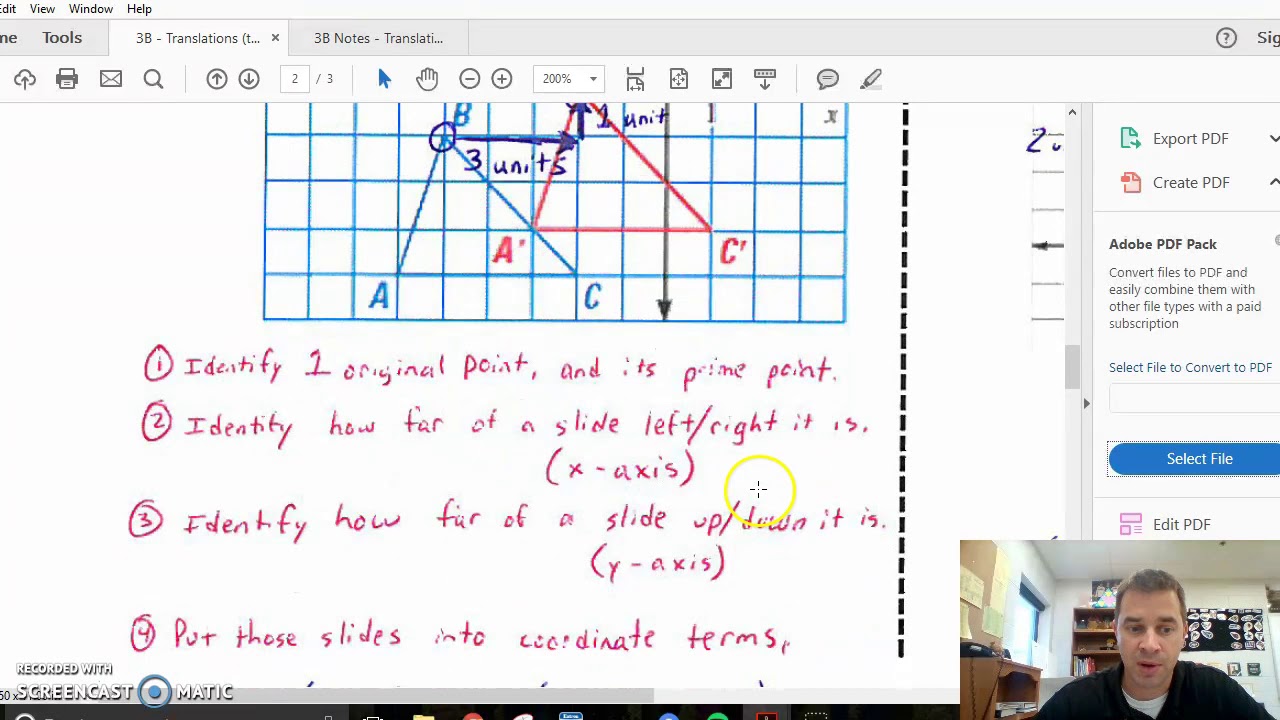 Edit View Window Help
Tools 3B - Translations (t... × 3B Notes - Translati...
2 / 3 200%
B 1 unit x
3 units
A' C'
A C
① Identify 1 original point, and its prime point.
② Identify how far of a slide left/right it is.
(x-axis)
③ Identify how far of a slide up/down it is.
(y-axis)
④ Put those slides into coordinate terms,
Export PDF
Create PDF
Adobe PDF Pack
Convert files to PDF and
easily combine them with
other file types with a paid
subscription
Select File to Convert to PDF
Select File
Edit PDF
RECORDED WITH
SCREENCAST MATIC